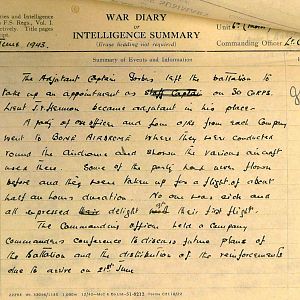 WAR DIARY
or
INTELLIGENCE SUMMARY
(Erase heading not required)
and Intelligence
n F.S. Regs., Vol. I.
ectively. Title pages
ript.
June 1943.
Unit
Commanding Officer
Summary of Events and Information
The Adjutant Captain left the battalion to
take up an appointment as Staff Captain on 30 CORPS.
Lieut became adjutant in his place.
A party of one officer and four O.R's from each Company
went to BONE AIRDROME where they were conducted
round the Airdrome and shown the various aircraft
used there. Some of the party had never flown
before and they were taken up for a flight of about
half an hours duration. No one was sick and
all expressed their delight at their first flight.
The Commanding Officer held a Company
Commanders conference to discuss future plans of
the battalion and the distribution of the reinforcements
due to arrive on 21st June